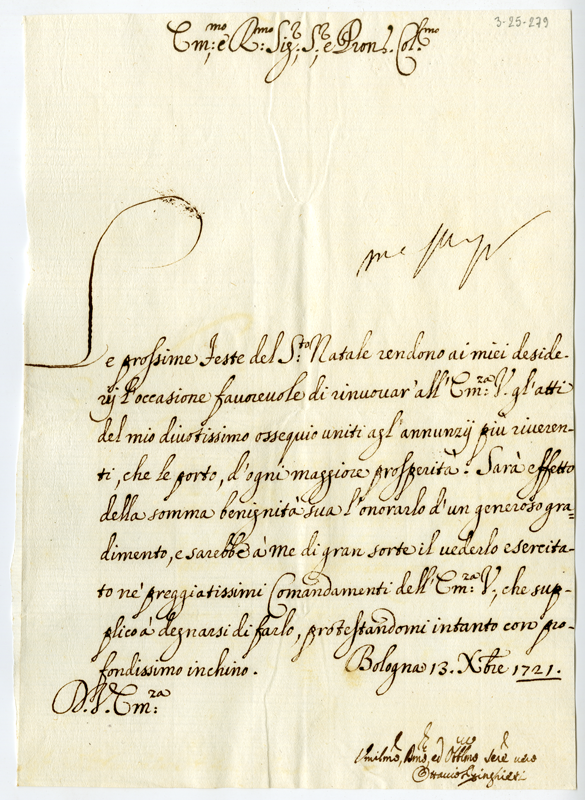 3-25-279
Em:mo e R:mo Sig:r S:r e Pron. Col:mo
Le prossime Feste del S:to Natale rendono ai miei deside-
rij l'occasione favorevole di rinuovar' all'Em:ra V. gl'atti
del mio divotissimo ossequio uniti agl'annunzij più riveren-
ti, che le porto, d'ogni maggiore prosperità: Sarà effetto
della somma benignità sua l'onorarlo d'un generoso gra=
dimento, e sarebbe à me di gran sorte il vederlo esercita-
to né preggiatissimi Comandamenti dell'Em:ra V., che sup-
plico à degnarsi di farlo, protestandomi intanto con pro-
fondissimo inchino. Bologna 13. Xbre 1721.
D. V. Em:ra
Umilmo, ed Obblmo
Ottavio